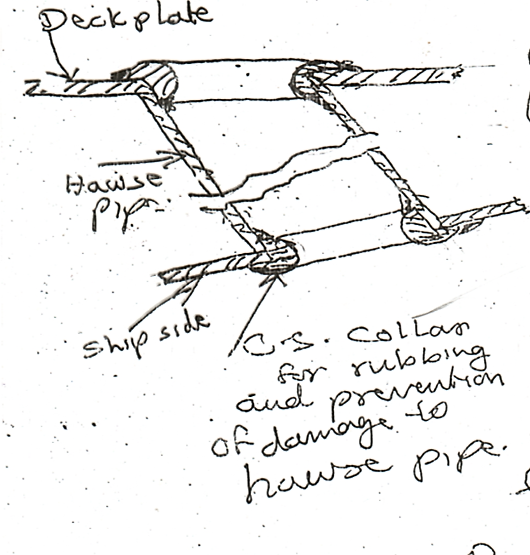 Deck plate
Hawse
pipe.
Ship side
C.S. Collar
for rubbing
and prevention
of damage to
hawse pipe.